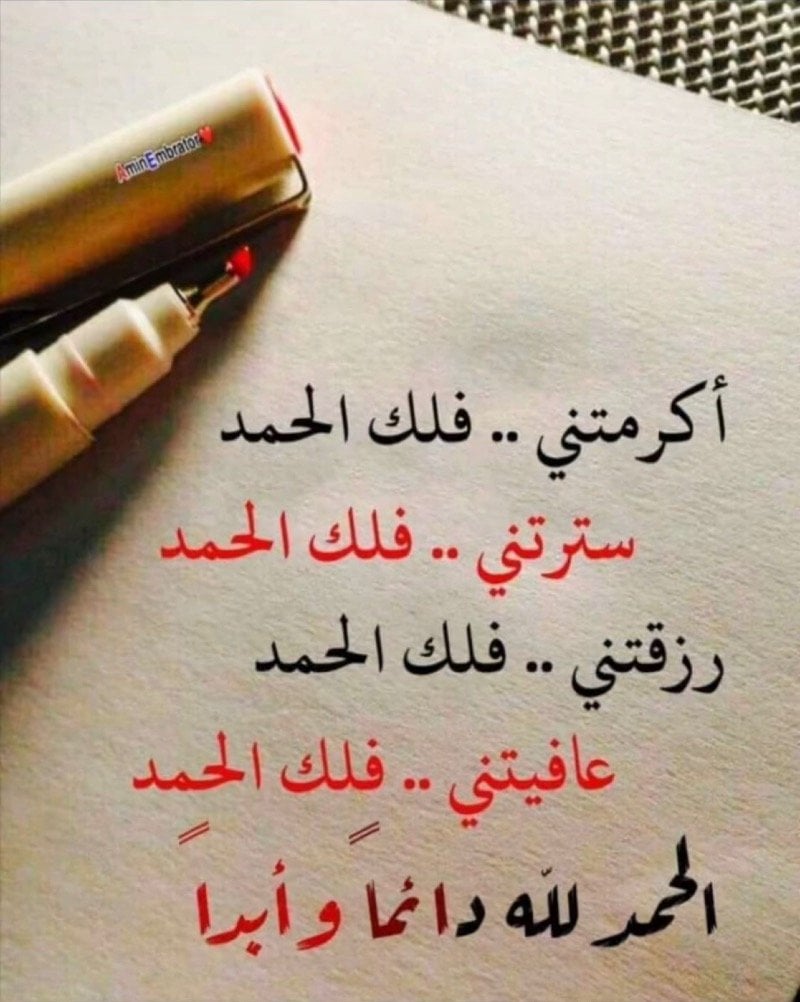 AminEmbrator❤
أكرمتني .. فلك الحمد
سترتني .. فلك الحمد
رزقتني .. فلك الحمد
عافيتني .. فلك الحمد
الحمد لله دائماً وأبداً